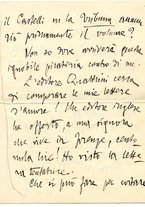 il Castelli su la Tribuna
prossimamente il volume?
Non so dove arriverà questa
ignobile pirateria contro di me.
L'editore Quattrini cerca
di comperare le mie lettere
d'amore! Un editore inglese
ha offerto, a una signora
che vive in Firenze, cento
mila lire! Ho visto la lettera
tentatrice.
Che si può fare per evitare